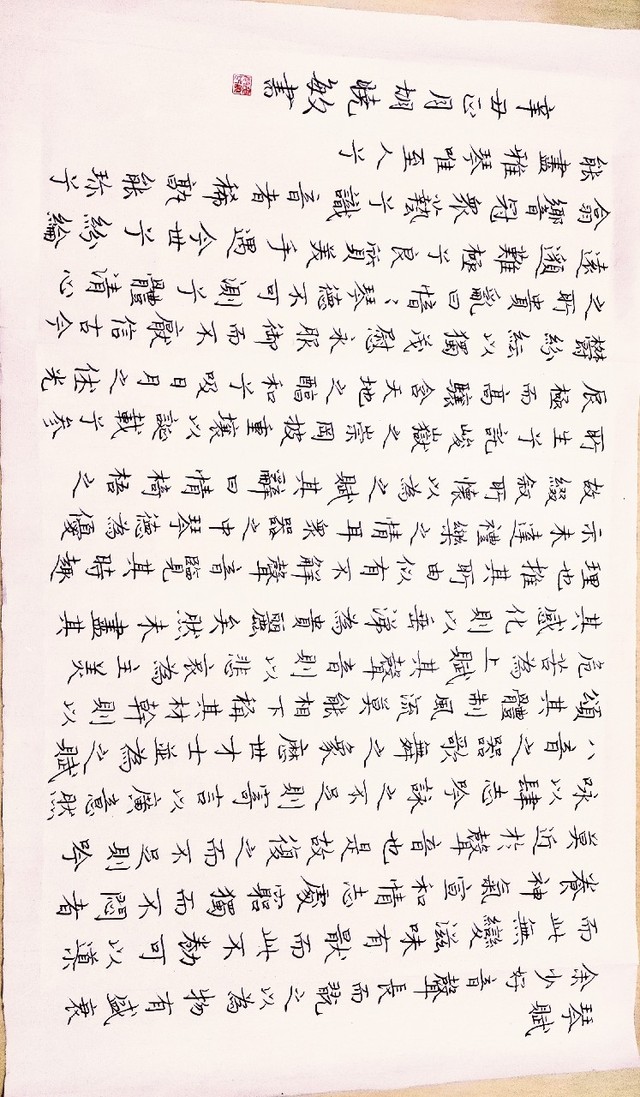 琴賦
余少好音聲長而翫之以為物有盛衰
而此無變滋味有猒而此不勌可以導
養神氣宣和情志處窮獨而不悶者
莫近於聲音也是故復之而不足則吟
咏以肆志吟詠之不足則寄言以廣意然
八音之器歌舞之象歷世才士並為之賦
頌其體制風流莫能相下稱其材幹則以
危苦為上賦其聲音則以悲哀為主美
其感化則以垂涕為貴麗矣然未盡其
理也推其所由似有不解聲音覽其時趣
亦未達禮樂之情耳眾器之中琴德為優
故綴敘所懷以為之賦其辭曰情椅梧之
所生兮託峻嶽之崇岡披重壤以誕載兮參
辰極而高驤含天地之醇和兮吸日月之休光
鬱紛紜以獨茂慰永服御而不厭信古今
之所貴亂曰愔愔琴德不可測兮體清心
遠邈難極兮良質美手遇今世兮紛綸
翕響冠眾藝兮識音者稀孰能珍兮
能盡雅琴唯至人兮
辛丑正月胡曉敏書